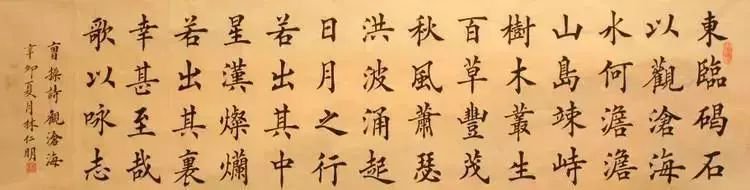 東臨碣石
以觀滄海
水何澹澹
山島竦峙
樹木叢生
百草豐茂
秋風蕭瑟
洪波涌起
日月之行
若出其中
星漢燦爛
若出其裏
幸甚至哉
歌以咏志
曹操詩觀滄海
辛卯夏月林仁明